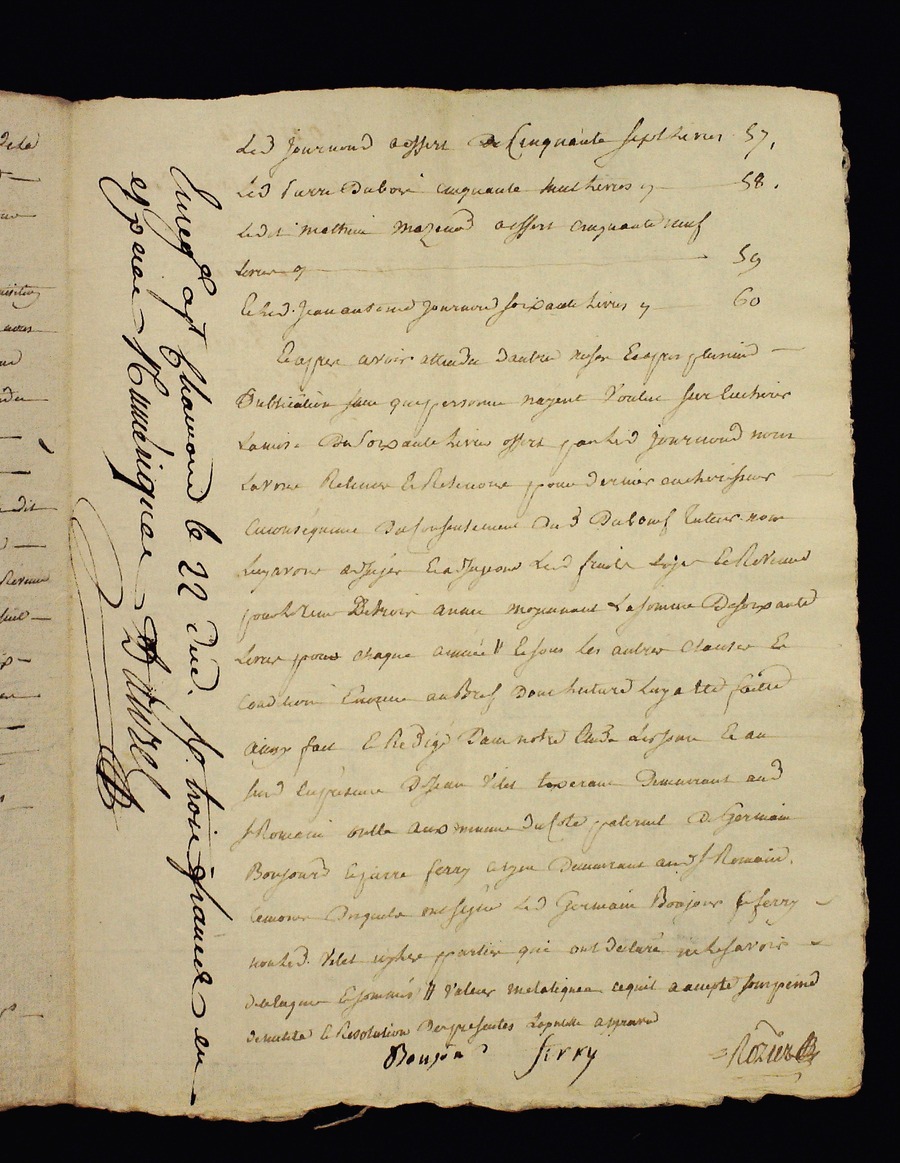 Led Journoud a offert de Cinquante Sept Livres 57.
Led Pierre Duboeï cinquante huit Livres 58.
Ledit mathieu mazenod a offert cinquante neuf
Livres 59
Et led. Jean antoine Journoud soixante Livres 60
Et apres avoir attendu d'autre mises Et apres plusieurs
Publication sans que personne n'ayent Voulue sur Encherir
La mise De Soixante Livres offert par led Journoud nous
Lavons Retenue Et Retenons pour dernier encherisseur
En conséquence Du Consentement Du d Duboeuf tuteur nous
Luy avons adjugés Et adjugeons Led
pour le tems De trois annee moyennant La somme De Soixante
Livres pour chaque année // Et sous les autres Clauses Et
Condition au Bref Dont lecture Luy a été faitte
Ainsy fait Et Redigé Dans notre Et au
lieud En présence De Jean Vilet Demeurant aud
St Romain oncle aux mineurs du Coté paternel De Germain
Bonjour Et pierre ferry Demeurant aud St Romain.
temoins Requis ont signé Led Germain Bonjour Et ferry
non led. Vilet ny les parties qui ont declaré ne le savoir
de ce Enquis Et sommés // Valeur metalique ce quil a accepté sous peine
de nullité Et Resolution Des presentes approuvé
Bonjour ferry Rozier
Enreg. a St Chamond le 22 R. trois francs en
espece Numérique